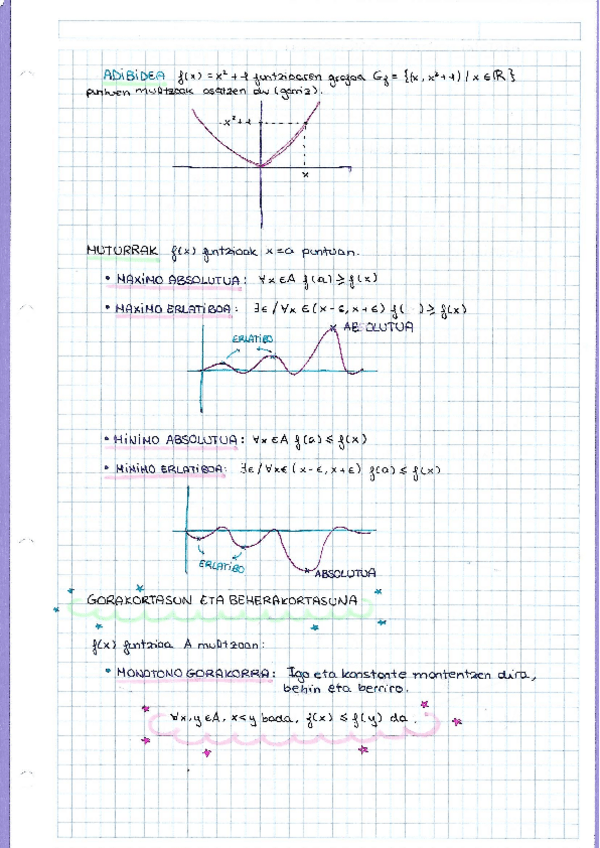 ADIBIDEA f(x) = x² + 1 funtzioaren grafoa Gf = {(x, x²+1) / x ∈ ℝ}
puntuen multzoak osatzen du (gorriz).
x²+1
x
MUTURRAK f(x) funtzioak x=a puntuan.
• MAXIMO ABSOLUTUA: ∀x ∈ A f(a) ≥ f(x)
• MAXIMO ERLATIBOA: ∃ε / ∀x ∈ (x-ε, x+ε) f( ) ≥ f(x)
ERLATIBO
AB OLUTUA
• MINIMO ABSOLUTUA: ∀x ∈ A f(a) ≤ f(x)
• MINIMO ERLATIBOA: ∃ε / ∀x ∈ (x-ε, x+ε) f(a) ≤ f(x)
ERLATIBO
ABSOLUTUA
GORAKORTASUN ETA BEHERAKORTASUNA
f(x) funtzioa A multzoan:
• MONOTONO GORAKORRA: Igo eta konstante mantentzen dira,
behin eta berriro.
∀x,y ∈ A, x<y bada, f(x) ≤ f(y) da.